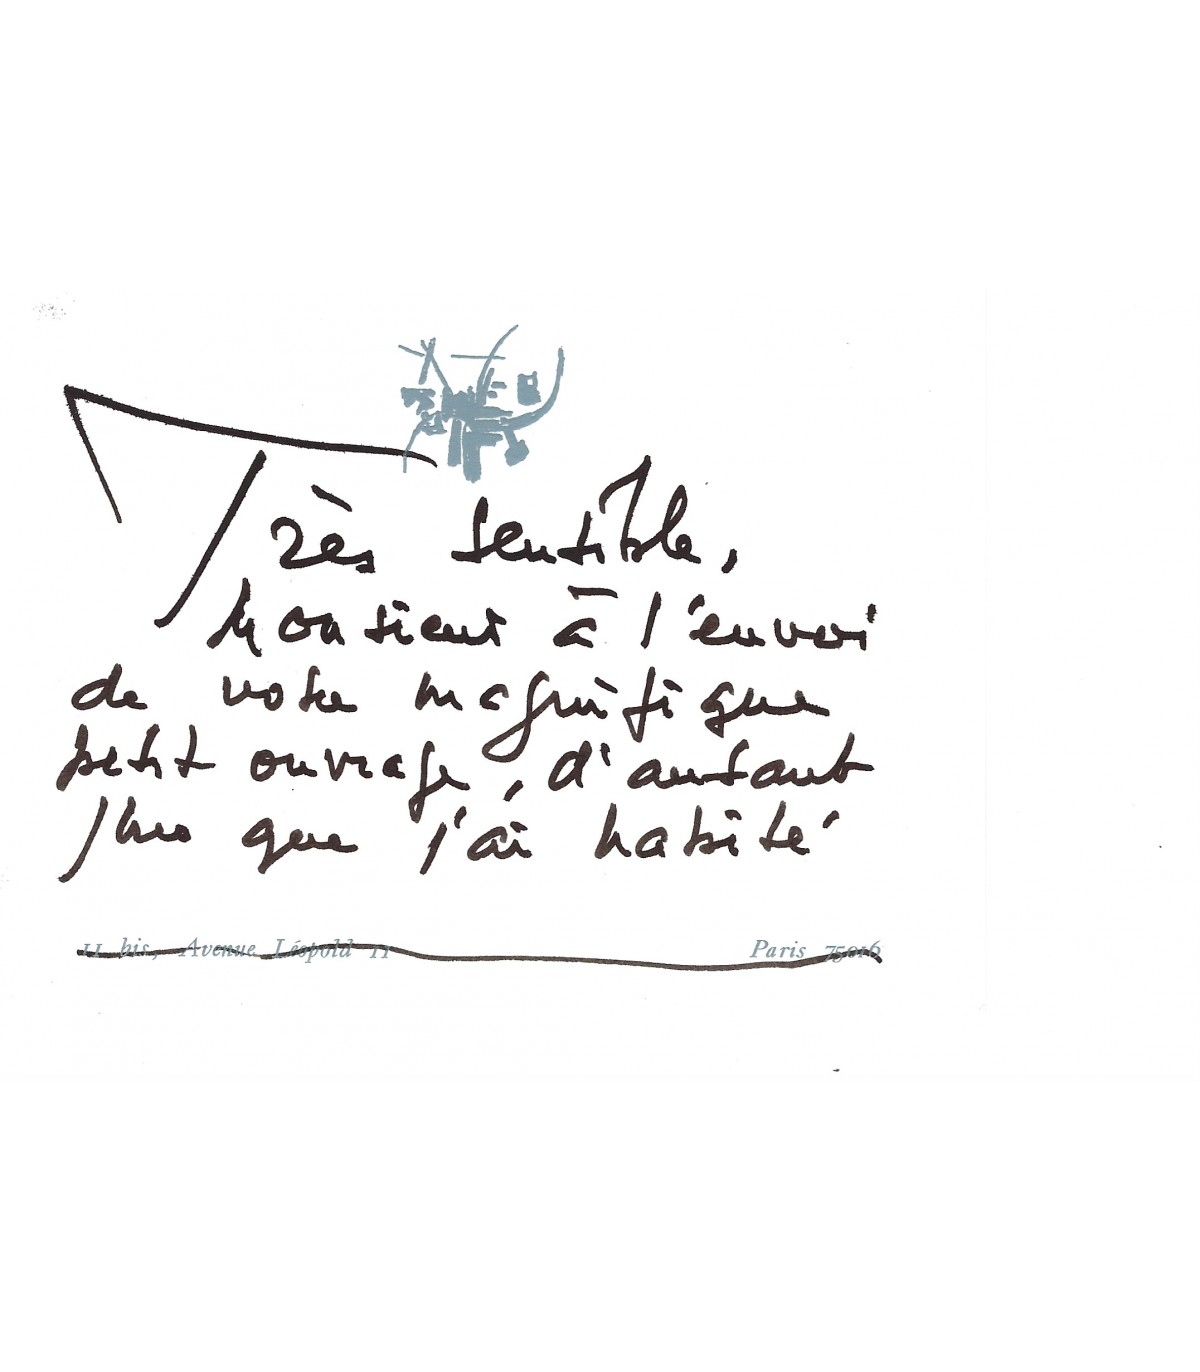 Très sensible,
Monsieur à l'envoi
de votre magnifique
petit ouvrage, d'autant
plus que j'ai habité
11 bis, Avenue Léopold II Paris 75016